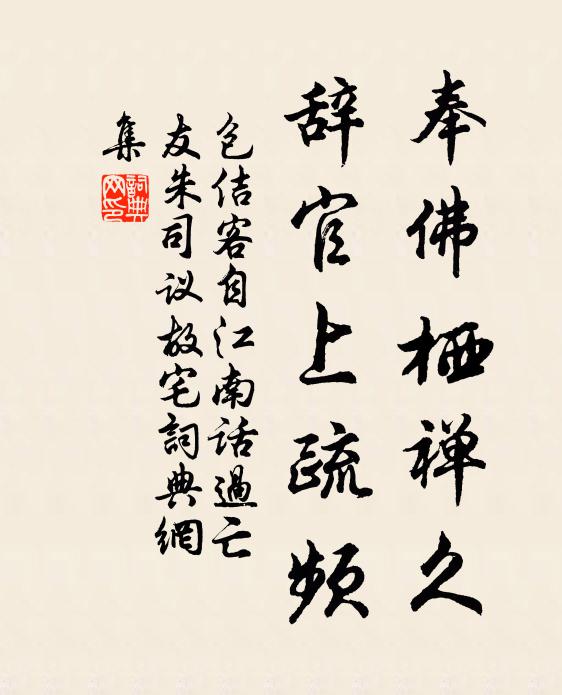 奉佛栖禅久
辞官上疏频
包佶客自江南话過亡
友朱司议故宅詞典網
集
詞典
网印